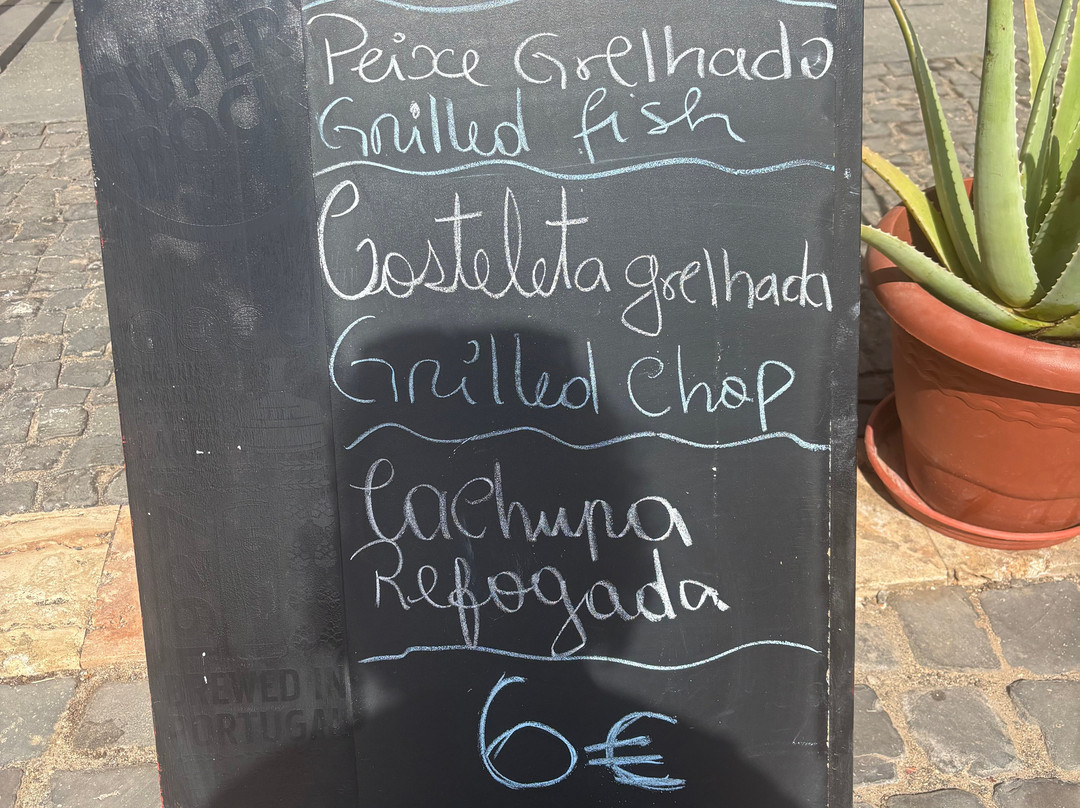 SUPER
BOCK
Peixe Grelhado
Grilled fish
Costeleta grelhada
Grilled Chop
Cachupa
Refogada
6€
BREWED IN
PORTUGAL